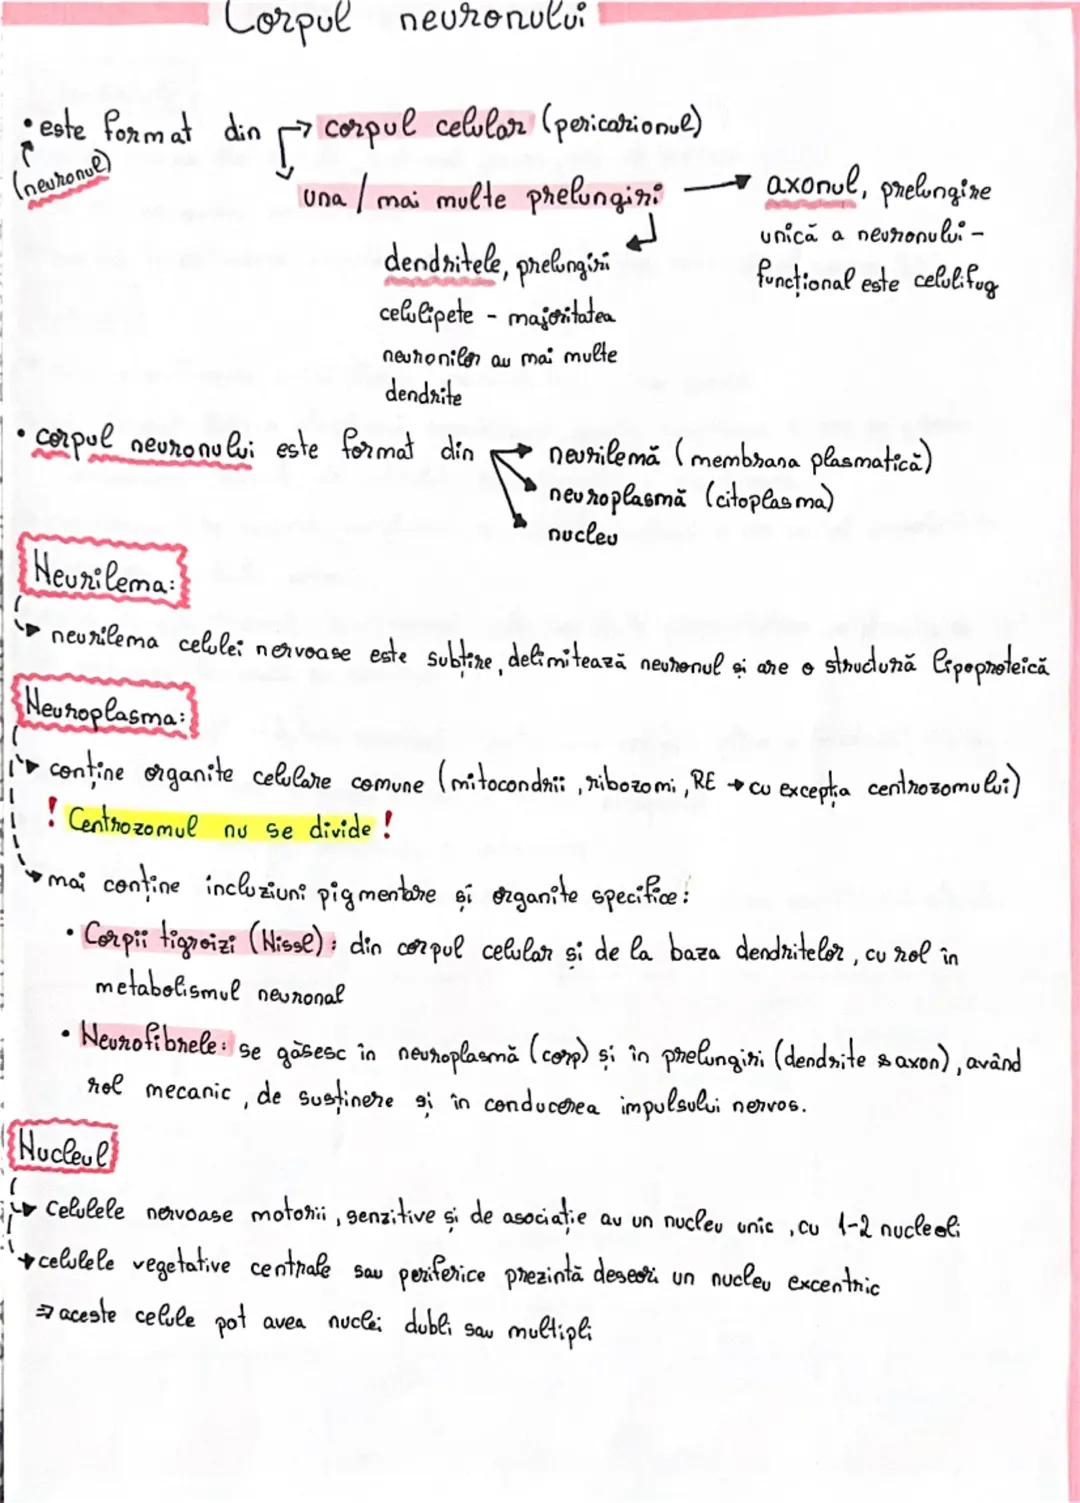 Corpul neuronului
• este format din → corpul celular (pericarionul)
(neuronul)
una / mai multe prelungiri → axonul, prelungire
unică a neuronului -
funcțional este celulifug
dendritele, prelungiri
celulipete - majoritatea
neuronilor au mai multe
dendrite
• corpul neuronului este format din → neurilemă (membrana plasmatică)
neuroplasmă (citoplasma)
nucleu
Neurilema:
neurilema celulei nervoase este subțire, delimitează neuronul și are o structură lipoproteică
Neuroplasma:
conține organite celulare comune (mitocondrii, ribozomi, RE → cu excepția centrozomului)
! Centrozomul nu se divide !
mai conține incluziuni pigmentare și organite specifice:
• Corpii tigroizi (Nissl): din corpul celular și de la baza dendritelor, cu rol în
metabolismul neuronal
• Neurofibrele: se găsesc în neuroplasmă (corp) și în prelungiri (dendrite & axon), având
rol mecanic, de susținere și în conducerea impulsului nervos.
Nucleul
celulele nervoase motorii, senzitive și de asociație au un nucleu unic, cu 1-2 nucleoli
celulele vegetative centrale sau periferice prezintă deseori un nucleu excentric
⇒ aceste celule pot avea nuclei dubli sau multipli